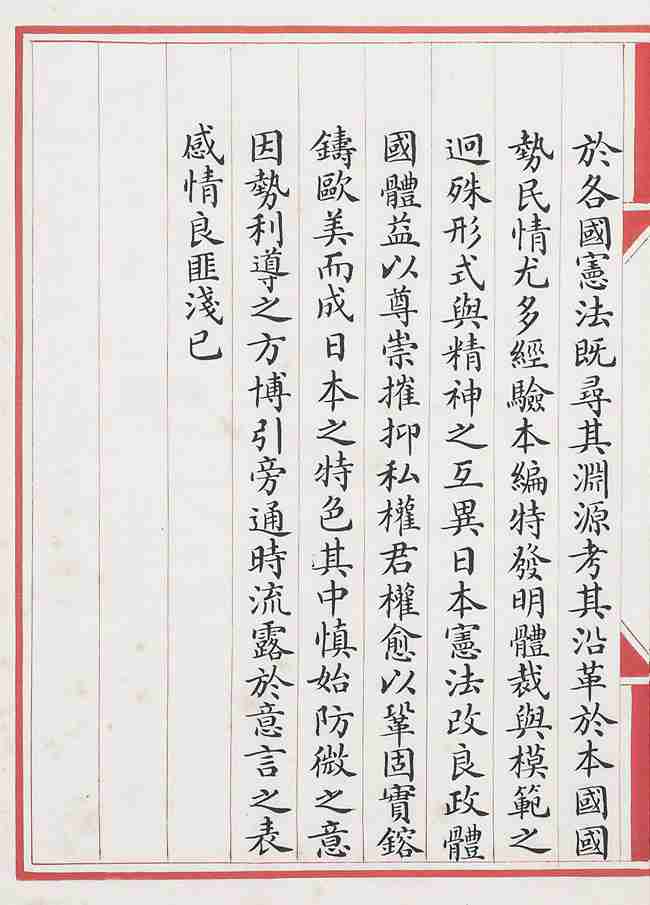 於各國憲法既尋其淵源考其沿革於本國國
勢民情尤多經驗本編特發明體裁與模範之
迥殊形式與精神之互異日本憲法改良政體
國體益以尊崇摧抑私權君權愈以鞏固實鎔
鑄歐美而成日本之特色其中慎始防微之意
因勢利導之方博引旁通時流露於意言之表
感情良匪淺已